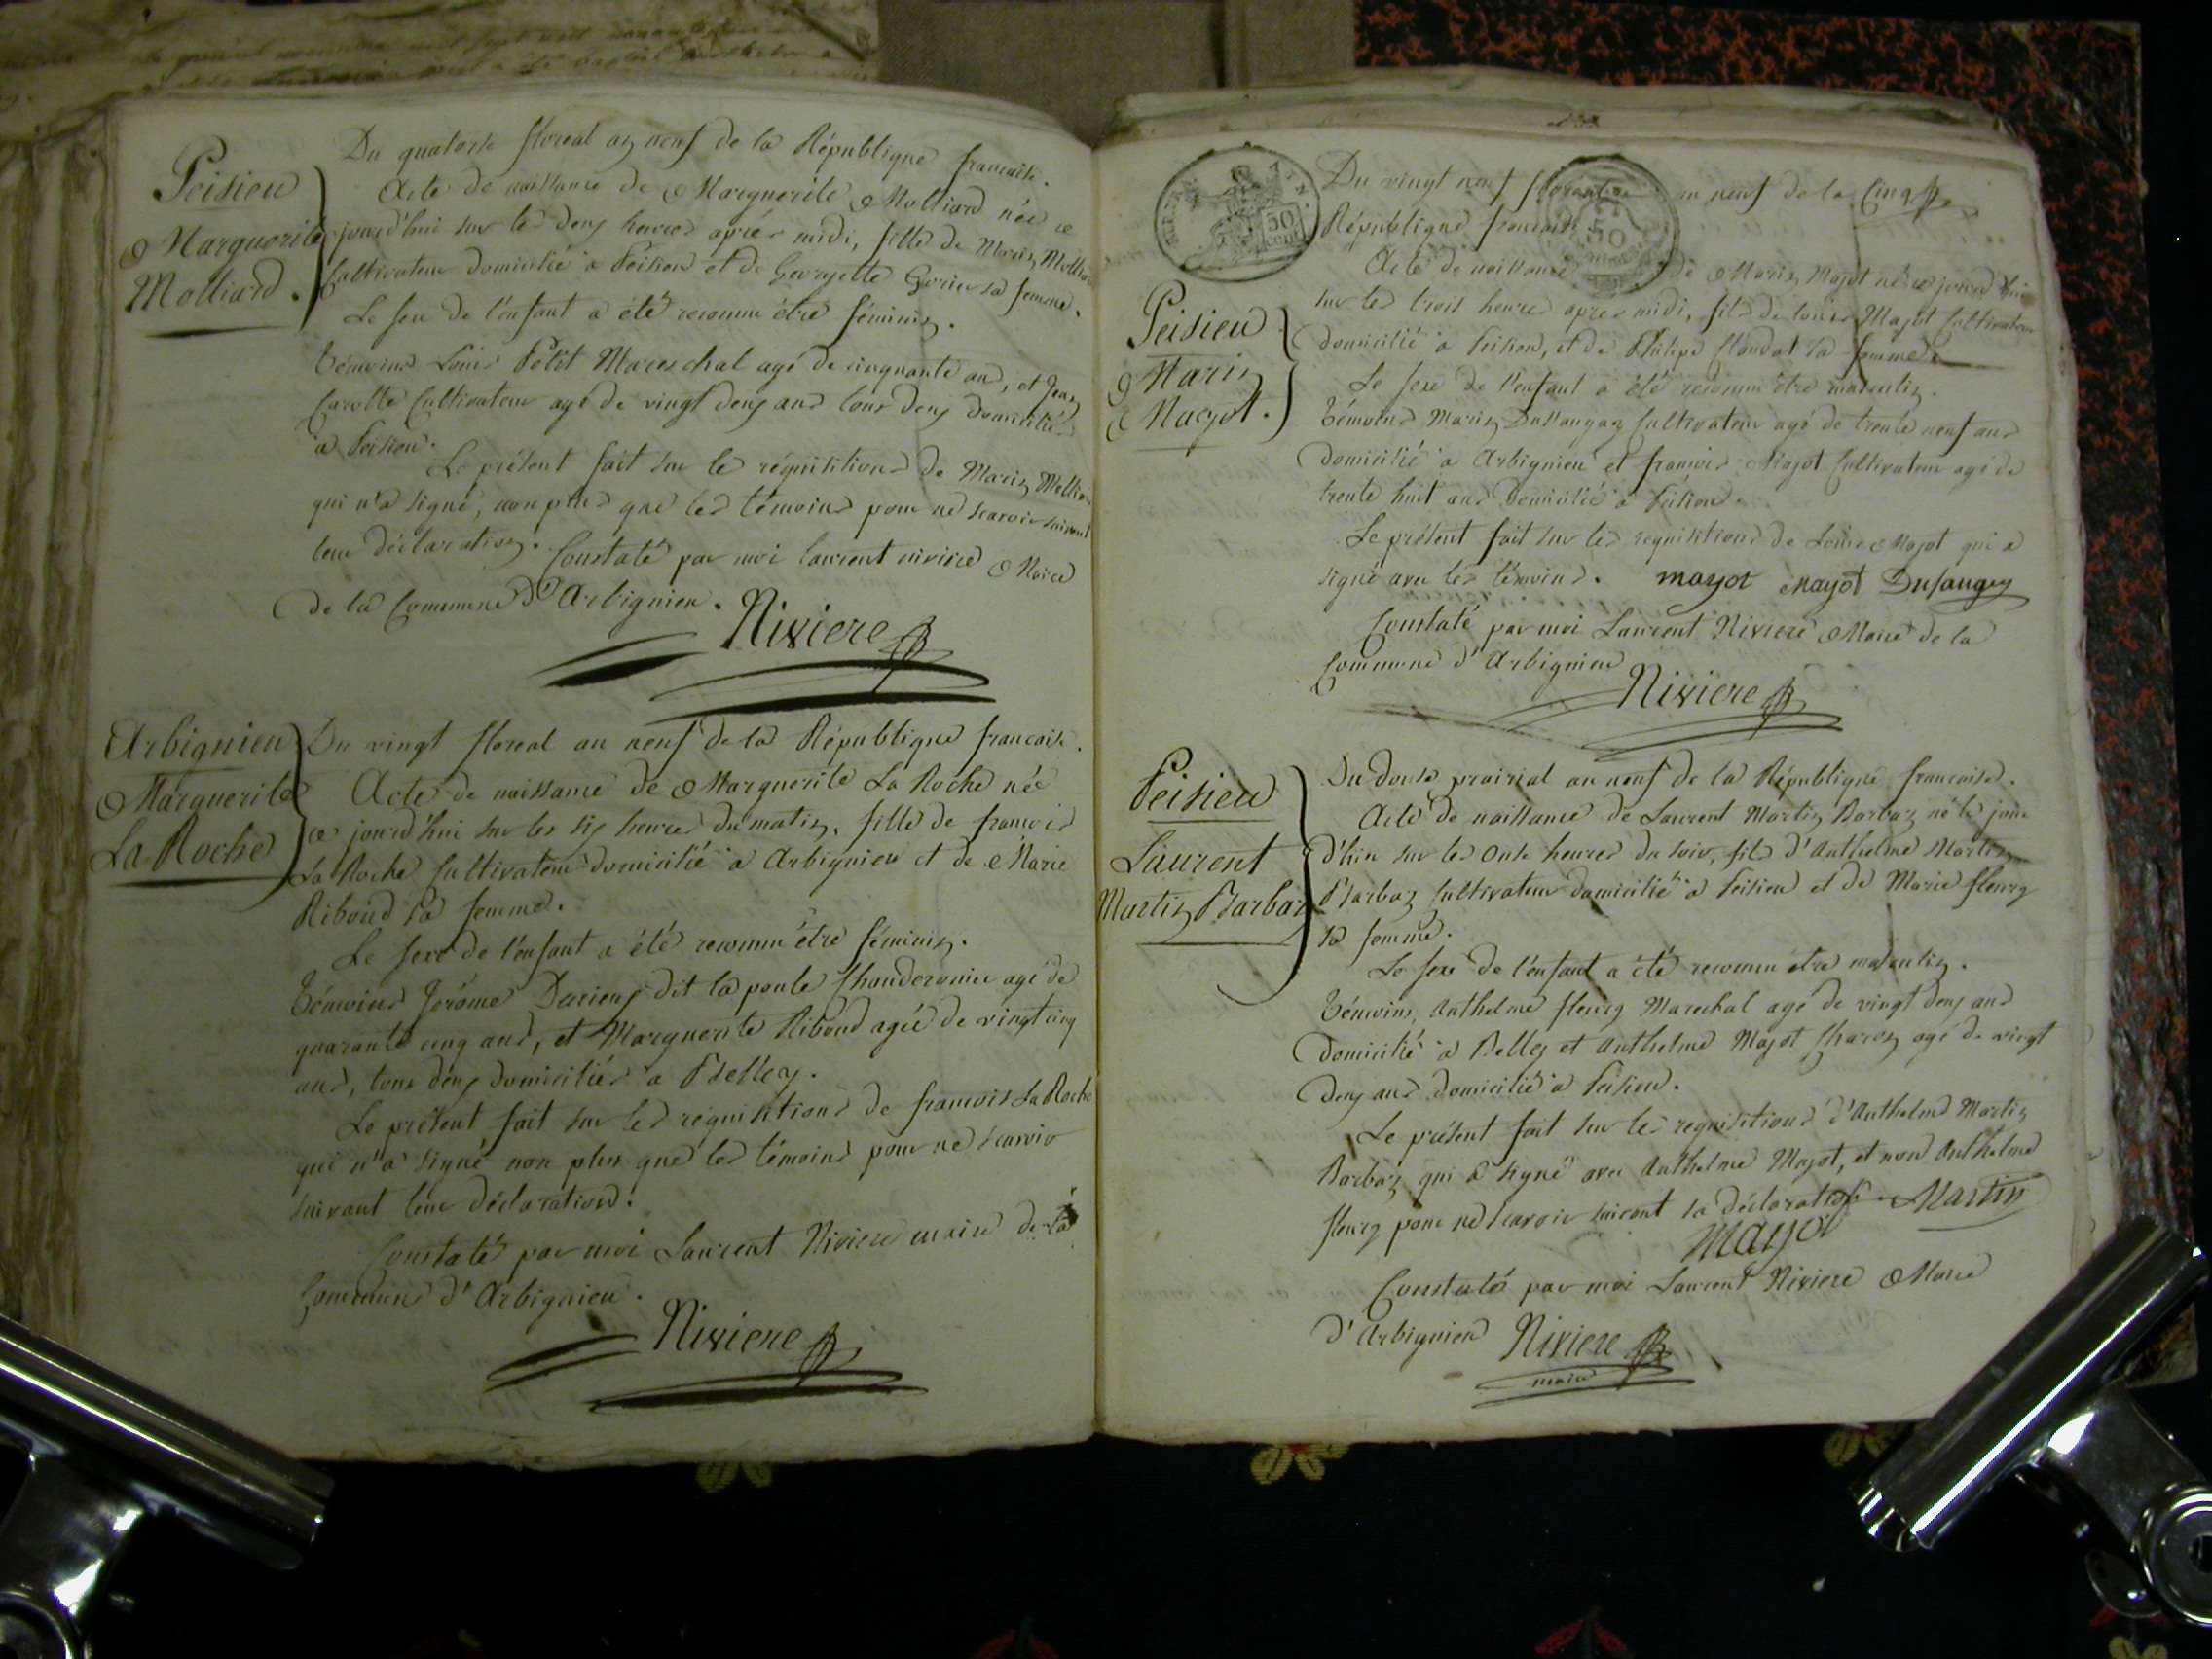 Peisieu
Marguerite
Molliard.
Du quatorse floreal an neuf de la République francaise.
Acte de naissance de Marguerite Molliard née ce
jourd'hui sur les deux heures aprés midi, fille de Marin
Cultivateur domicilié a Peisieu et de Georgette sa femme.
Le sexe de l'enfant a été reconnu être féminin.
témoins Louis Petit Mareschal agé de cinquante ans, et Jean
Carotte Cultivateur agé de vingt deux ans tous deux domiciliés
a Peisieu.
Le présent fait sur le réquisitions de Marin
qui n'a signé, non plus que les témoins pour ne scavoir suivant
leur déclaration. Constaté par moi laurent niviere Maire
de la Commune d'Arbignieu. Niviere
Arbignieu
Marguerite
La Roche
Du vingt floreal an neuf de la République francaise.
Acte de naissance de Marguerite La Roche née
ce jourd'hui sur les six heures du matin, fille de francois
La Roche Cultivateur domicilié a Arbignieu et de Marie
Riboud sa femme.
Le sexe de l'enfant a été reconnu être féminin.
témoins Jerôme dit la poule Chauderonier agé de
quarante cinq ans, et Marguerite Riboud agée de vingt cinq
ans, tous deux domiciliés a Belley.
Le présent fait sur les requisitions de francois La Roche
qui n'a signé non plus que les témoins pour ne scavoir
suivant leur déclaration.
Constaté par moi Laurent Niviere maire de la
Commune d'Arbignieu.
Niviere
50
cent
50
Du vingt neuf an neuf de la
République francaise
Peisieu
Marin
Mayot.
Acte de naissance de Marin Majot né ce jourd'hui
sur les trois heures apres midi, fils de louis Majot Cultivateur
domicilié a Peisieu, et de Philipe sa femme
Le sexe de l'enfant a été reconnu être masculin.
témoins Marin Cultivateur agé de trente neuf ans
domicilié a Arbignieu et francois Majot Cultivateur agé de
trente huit ans domicilié a Peisieu.
Le présent fait sur les requisitions de Louis Majot qui a
signé avec les témoins. mayot mayot Dusaugey
Constaté par moi Laurent Niviere Maire de la
Commune d'Arbignieu
Niviere
Peisieu
Laurent
Martin Barbaz
Du douse prairial an neuf de la République francaise.
Acte de naissance de Laurent Martin Barbaz né le jour
d'hiu sur les onse heures du soir, fils d'Anthelme Martin
Barbaz Cultivateur domicilié a Peisieu et de Marie fleury
sa femme.
Le sexe de l'enfant a été reconnu être masculin.
témoins, Anthelme fleury Marechal agé de vingt deux ans
domicilié a Belley et Anthelme Majot Charon agé de vingt
deux ans domicilié a Peisieu.
Le présent fait sur les requisitions d'Anthelme Martin
Barbaz qui a signé avec Anthelme Majot, et non Anthelme
fleury pour ne scavoir suivant sa déclaration. Martin
Mayot
Constaté par moi Laurent Niviere Maire
d'Arbignieu Niviere
maire